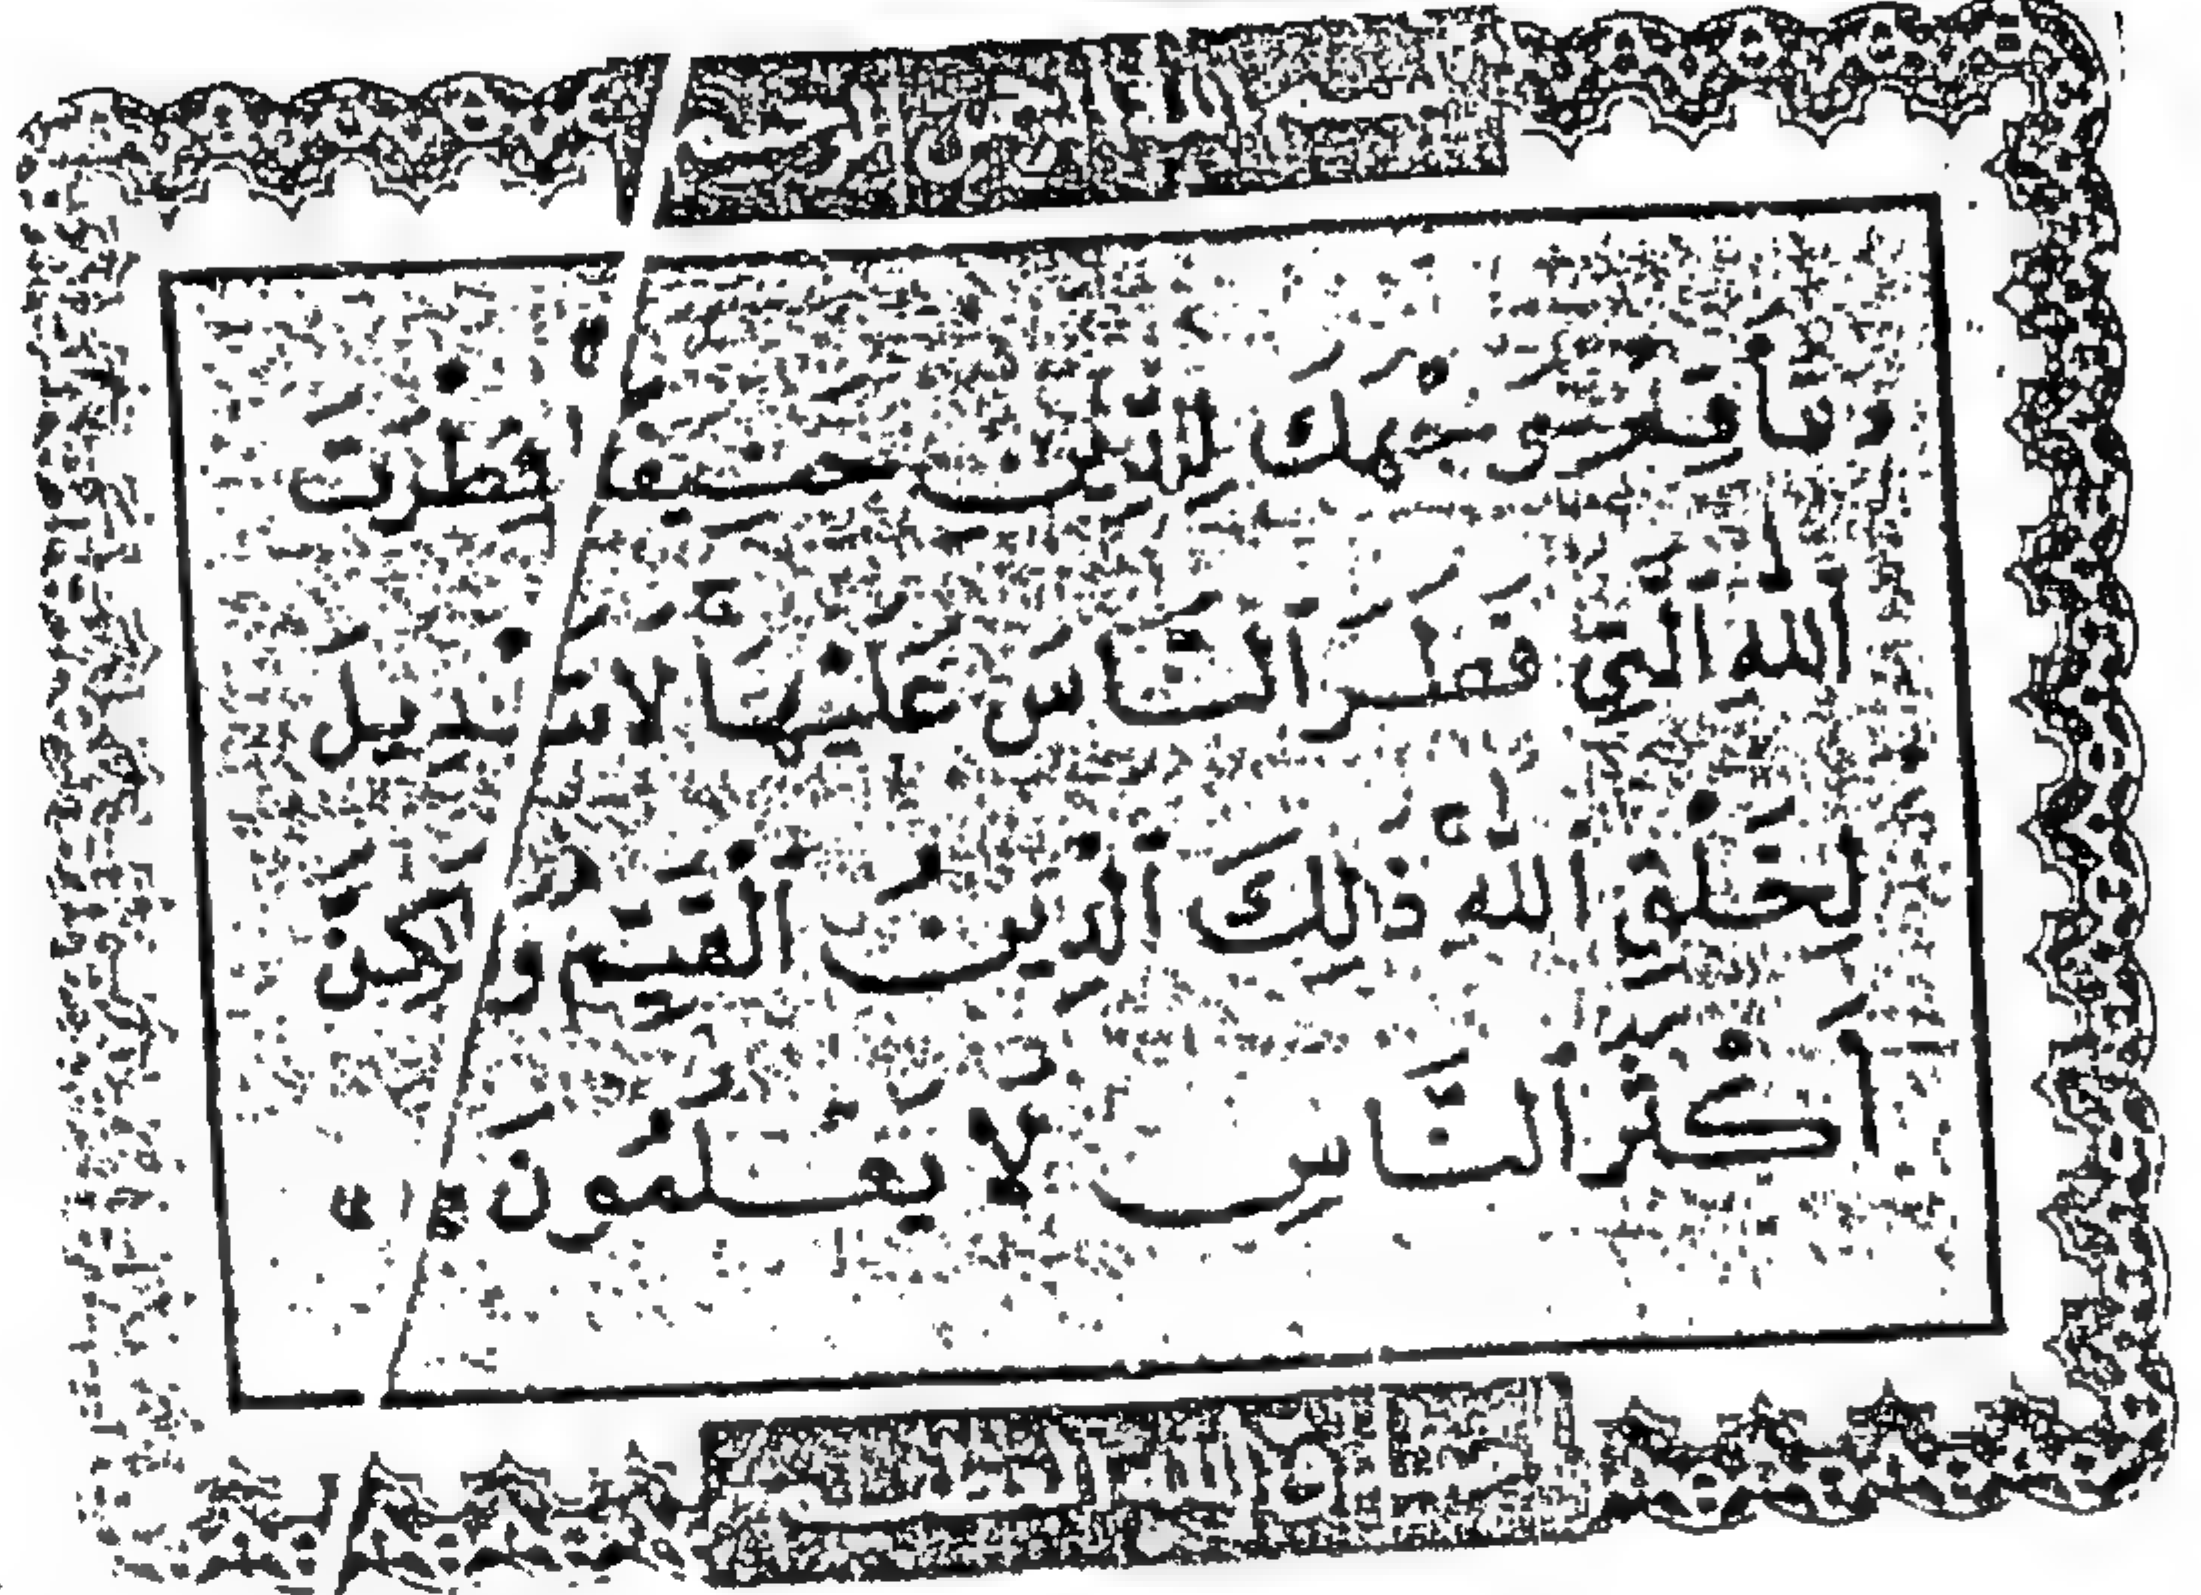 بسم الله الرحمن الرحيم
«فَأَقِمْ وَجْهَكَ لِلدِّينِ حَنِيفًا فِطْرَتَ
ٱللَّهِ ٱلَّتِي فَطَرَ ٱلنَّاسَ عَلَيْهَا لَا تَبْدِيلَ
لِخَلْقِ ٱللَّهِ ذَٰلِكَ ٱلدِّينُ ٱلْقَيِّمُ وَلَٰكِنَّ
أَكْثَرَ ٱلنَّاسِ لَا يَعْلَمُونَ»
صدق الله العظيم